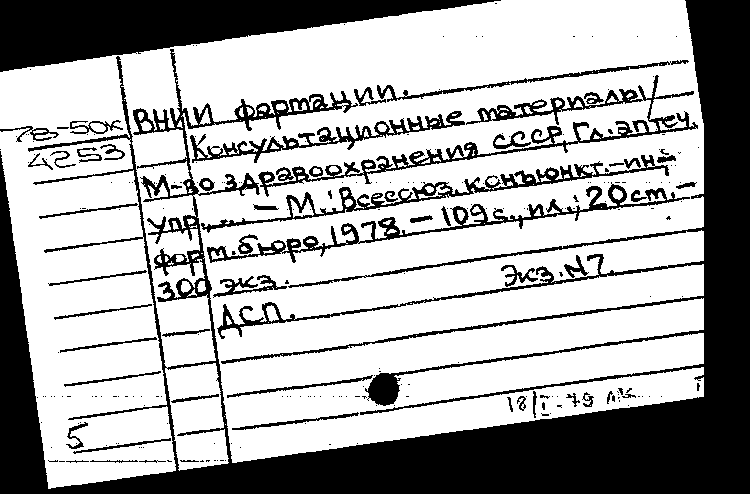 78-50к
4253
ВНИИ фармации.
Консультационные материалы /
М-во здравоохранения СССР, Гл. аптеч.
упр., ... – М.: Всесоюз. конъюнкт.-ин-
форм. бюро, 1978. – 109 с., ил.; 20 ст. –
300 экз. Экз. N7.
ДСП.
18/I-79
5